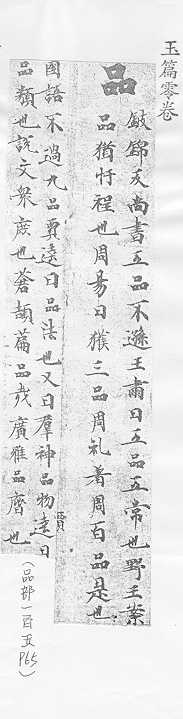 玉篇零卷
品
敍錦反尚書五品不遜王肅曰五品五常也野王案
品猶忖程也周易曰獲三品周礼着周百品是也
國語不過九品賈逵曰品法也又曰羣神品物逵曰
賈
品類也説文衆庻也蒼頡萹品式廣雅品齊也
(品部一百五 P65)